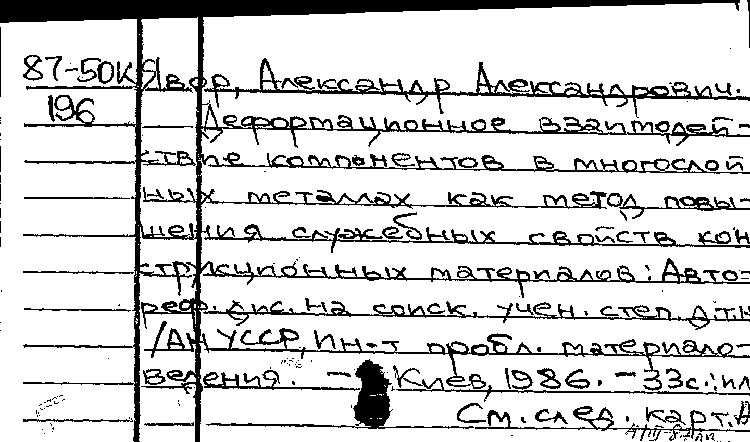 87-50К Явор, Александр Александрович.
196 Деформационное взаимодей-
ствие компонентов в многослой
ных металлах как метод повы-
шения служебных свойств кон
струкционных материалов: Авто-
реф. дис. на соиск. учен. степ. д.т.н
/АН УССР, Ин-т пробл. материало-
ведения. - Киев, 1986. - 33с.: ил
См. след. карт.